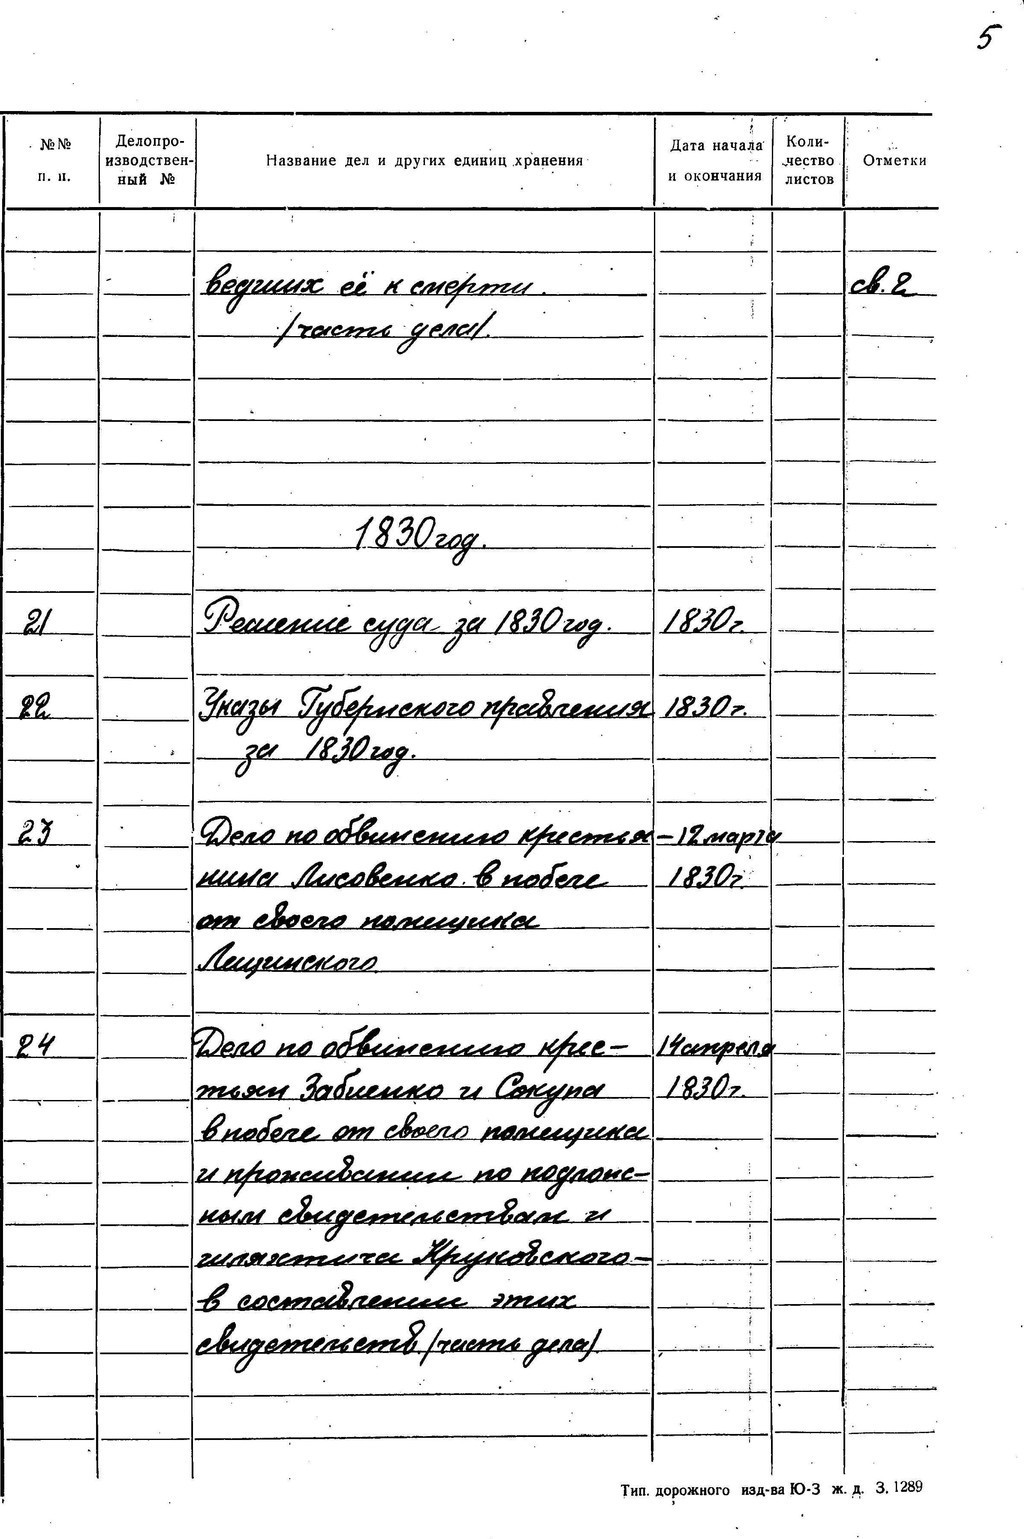 5
№№ п. п.
Делопро-
изводствен-
ный №
Название дел и других единиц хранения
Дата начала
и окончания
Коли-
чество
листов
Отметки
ведших её к смерти. св. 2
/часть дела/.
1830 год.
21 Решение суда за 1830 год. 1830 г.
22 Указы Губернского правления 1830 г.
за 1830 год.
23 Дело по обвинению крестья- 12 марта
нина Лисовенко в побеге 1830 г.
от своего помещика
Лещинского
24 Дело по обвинению крес- 14 апреля
тьян Забиенко и Сокупа 1830 г.
в побеге от своего помещика
и проживании по подлож-
ным свидетельствам и
шляхтича Круковского-
в составлении этих
свидетельств /часть дела/
Тип. дорожного изд-ва Ю-З ж. д. З. 1289